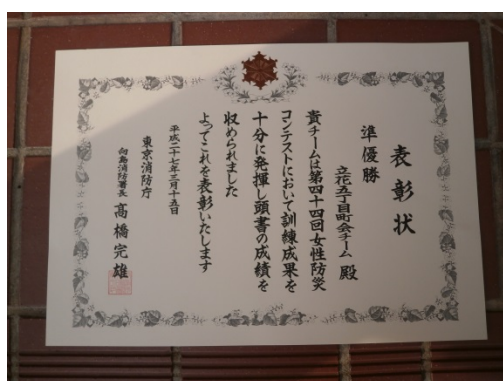 表彰状
準優勝
立花五丁目町会チーム 殿
貴チームは第四十四回女性防災
コンテストにおいて訓練成果を
十分に発揮し頭書の成績を
収められました
よってこれを表彰いたします
平成二十七年三月十五日
東京消防庁
向島消防署長 高橋完雄